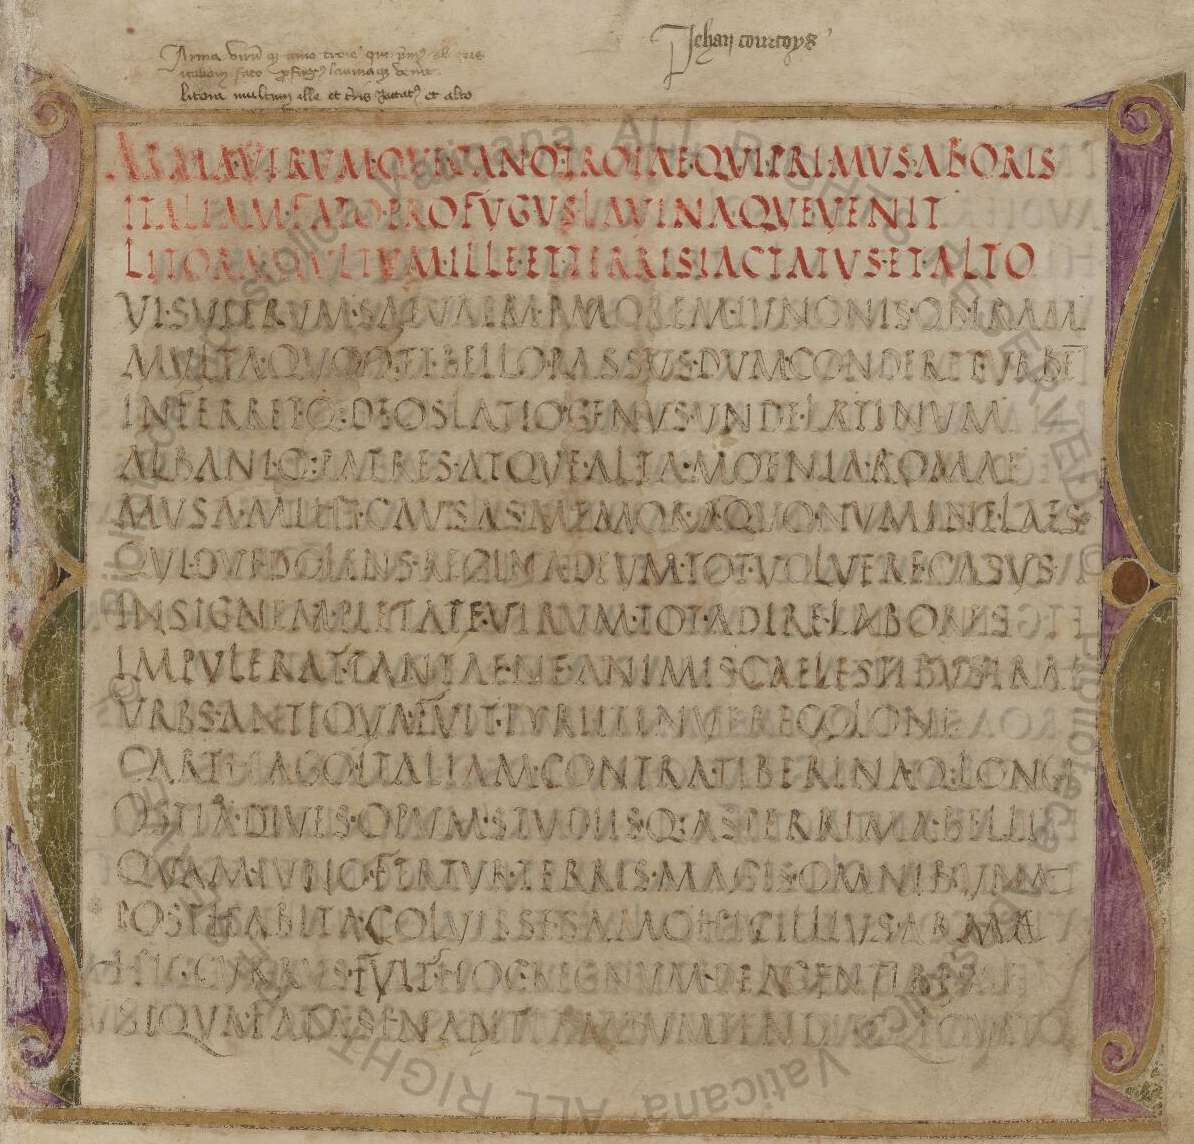 Arma virũ q cano troie qui p̃mꝰ ab oris
italiam fato ꝓfugꝰ lauinaq venit
litora multum ille et t̃ris iactatꝰ et alto
Jehan courtoys
ARMA·VIRVMQVE·CANO·TROIAE·QVI·PRIMVS·AB ORIS
ITALIAM·FATO·PROFVGVS LAVINAQVE VENIT
LITORA·MVLTVM·ILLE·ET·TERRIS IACTATVS·ET ALTO
VI·SVPERVM·SAEVAE MEMOREM·IVNONIS·OB·IRAM
MVLTA·QVOQ·ET·BELLO PASSVS·DVM·CONDERET·VRBE
INFERRET·Q·DEOS LATIO GENVS·VNDE·LATINVM
ALBANI·Q·PATRES·ATQVE·ALTA·MOENIA·ROMAE
MVSA·MIHI·CAVSAS·MEMORA·QVO NVMINE·LAESO
QVI·DVE DOLENS·REGINA·DEVM·TOT·VOLVERE CASVS
INSIGNEM·PIETATE·VIRVM·TOT·ADIRE·LABORES
IMPVLERAT·TANTAE·NE·ANIMIS·CAELESTIBVS·IRAE
VRBS·ANTIQVA·FVIT·TYRII TENVERE COLONI
CARTHAGO·ITALIAM·CONTRA·TIBERINAQ·LONGE
OSTIA·DIVES·OPVM·STVDIIS·Q·ASPERRIMA·BELLI
QVAM·IVNO·FERTVR·TERRIS·MAGIS·OMNIBVS
POSTHABITA·COLVISSE·SAMO·HIC ILLIVS·ARMA
HIC·CVRRVS·FVIT·HOC·REGNVM·DEA GENTIBVS
SI QVA·FATA SINANT